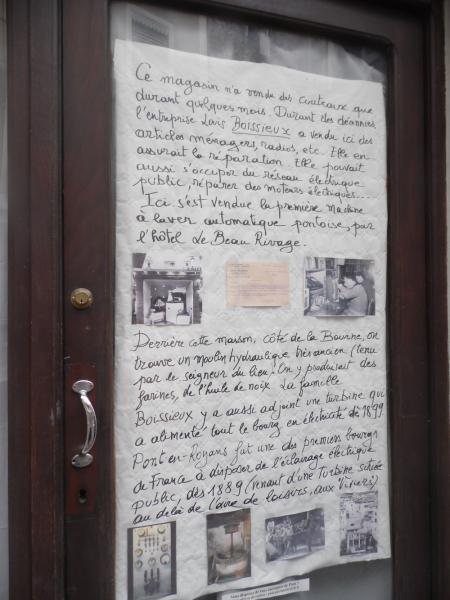 Ce magasin n'a vendu des couteaux que
durant quelques mois. Durant des décennies,
l'entreprise Louis BOISSIEUX a vendu ici des
articles ménagers, radios, etc. Elle en
assurait la réparation. Elle pouvait
aussi s'occuper du réseau électrique
public, réparer des moteurs électriques...
Ici s'est vendue la première machine
à laver automatique pontoise, par
l'hôtel Le Beau Rivage.
Derrière cette maison, côté de la Bourne, on
trouve un moulin hydraulique très ancien (tenu
par le seigneur du lieu). On y produisait des
farines, de l'huile de noix. La famille
Boissieux y a aussi adjoint une turbine qui
a alimenté tout le bourg en électricité dès 1899
Pont-en-Royans fut une des premiers bourgs
de France à disposer de l'éclairage électrique
public, dès 1889 (venant d'une turbine située
au delà de l'aire de loisirs, aux Viviers)